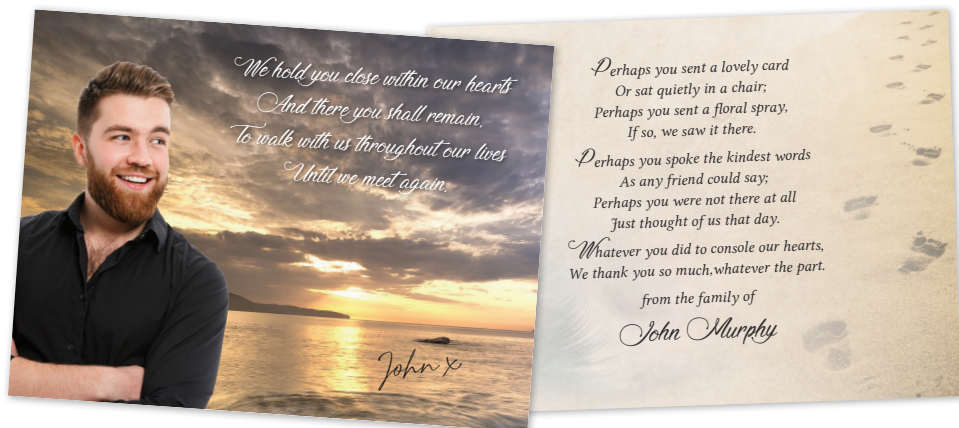 We hold you close within our hearts
And there you shall remain,
To walk with us throughout our lives
Until we meet again.
John x
Perhaps you sent a lovely card
Or sat quietly in a chair;
Perhaps you sent a floral spray,
If so, we saw it there.
Perhaps you spoke the kindest words
As any friend could say;
Perhaps you were not there at all
Just thought of us that day.
Whatever you did to console our hearts,
We thank you so much,whatever the part.
from the family of
John Murphy